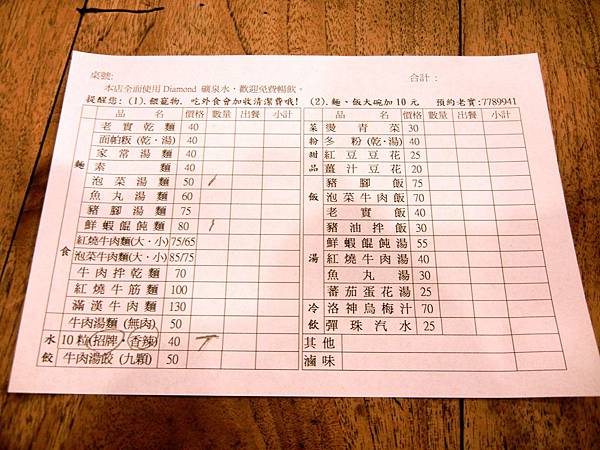 桌號: 合計:
本店全面使用Diamond 礦泉水,歡迎免費暢飲。
提醒您: (1).餵寵物. 吃外食會加收清潔費哦! (2).麵、飯大碗加10元 預約老實:7789941
品名 價格 數量 出餐 小計
麵食
老實乾麵 40
面帕粄(乾‧湯) 40
家常湯麵 40
素麵 40
泡菜湯麵 50
魚丸湯麵 60
豬腳湯麵 75
鮮蝦餛飩麵 80
紅燒牛肉麵(大‧小) 75/65
泡菜牛肉麵(大‧小) 85/75
牛肉拌乾麵 70
紅燒牛筋麵 100
滿漢牛肉麵 130
牛肉湯麵 (無肉) 50
水餃
10粒(招牌‧香辣) 40
牛肉湯餃 (九顆) 50
品名 價格 數量 出餐 小計
菜 燙青菜 30
粉 冬粉(乾‧湯) 30
甜品
紅豆豆花 25
薑汁豆花 20
飯
豬腳飯 75
泡菜牛肉飯 70
老實飯 40
豬油拌飯 30
湯
鮮蝦餛飩湯 55
紅燒牛肉湯 40
魚丸湯 30
蕃茄蛋花湯 25
冷飲
洛神烏梅汁 70
彈珠汽水 25
其他
滷味